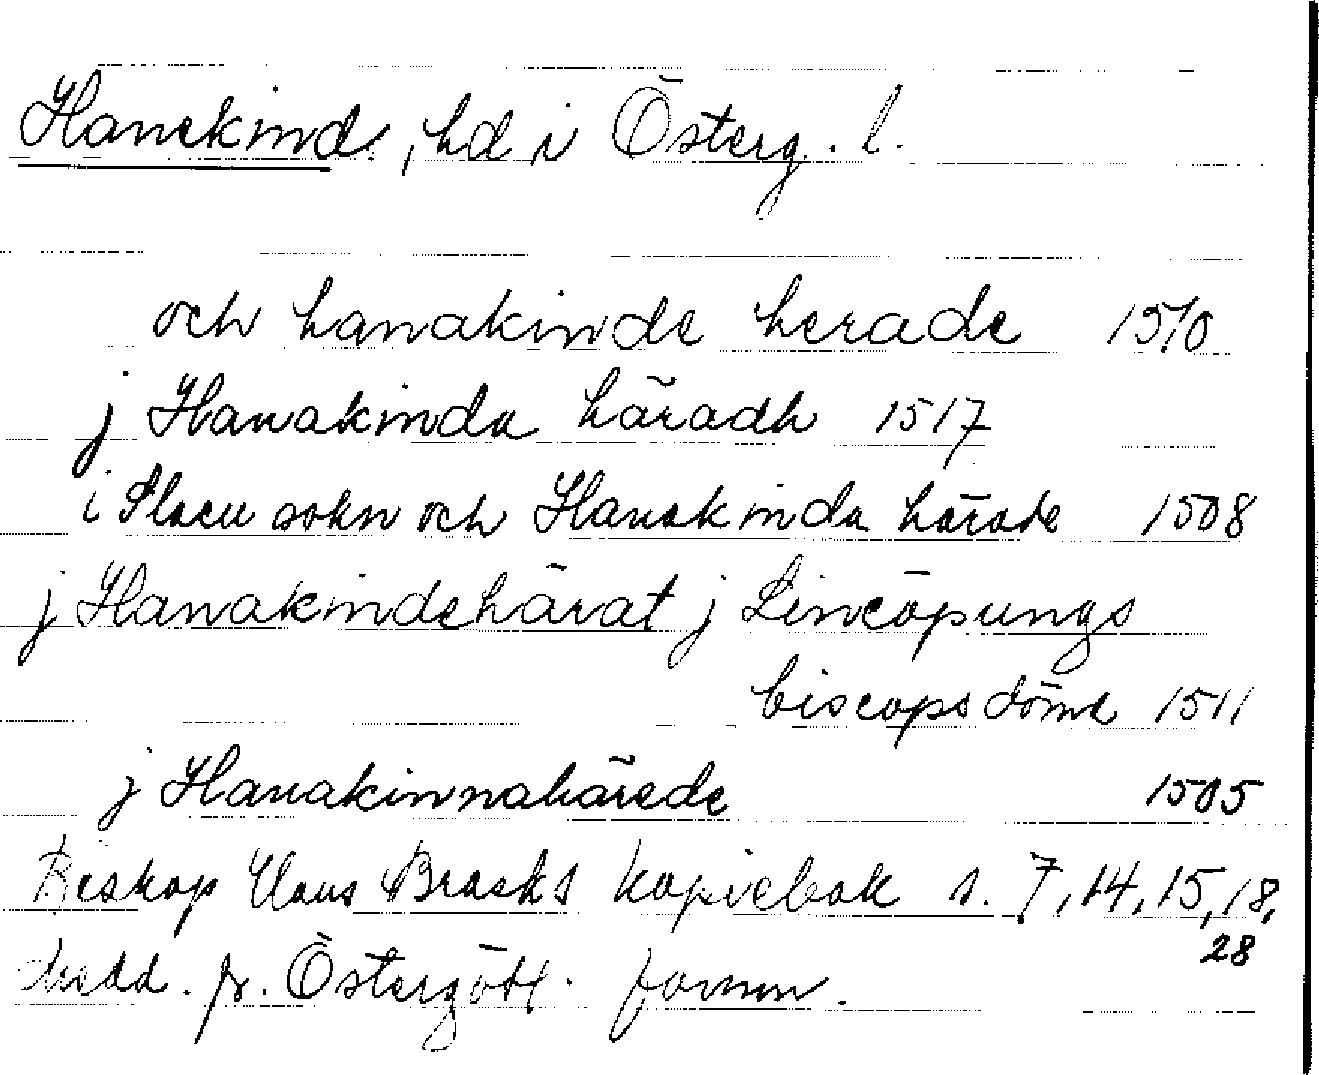 Hanekind, hd i Österg. l.
och hanakinde herade 1510
j Hanakinda häradh 1517
i Slacu sokn och Hanakinda härade 1508
j Hanakindehärat j Lincöpungs
biscopsdöme 1511
j Hanakinnahärede 1505
Biskop Hans Brasks kopiebok s. 7, 14, 15, 18,
28
Medd. fr. Östergötl. fornm.